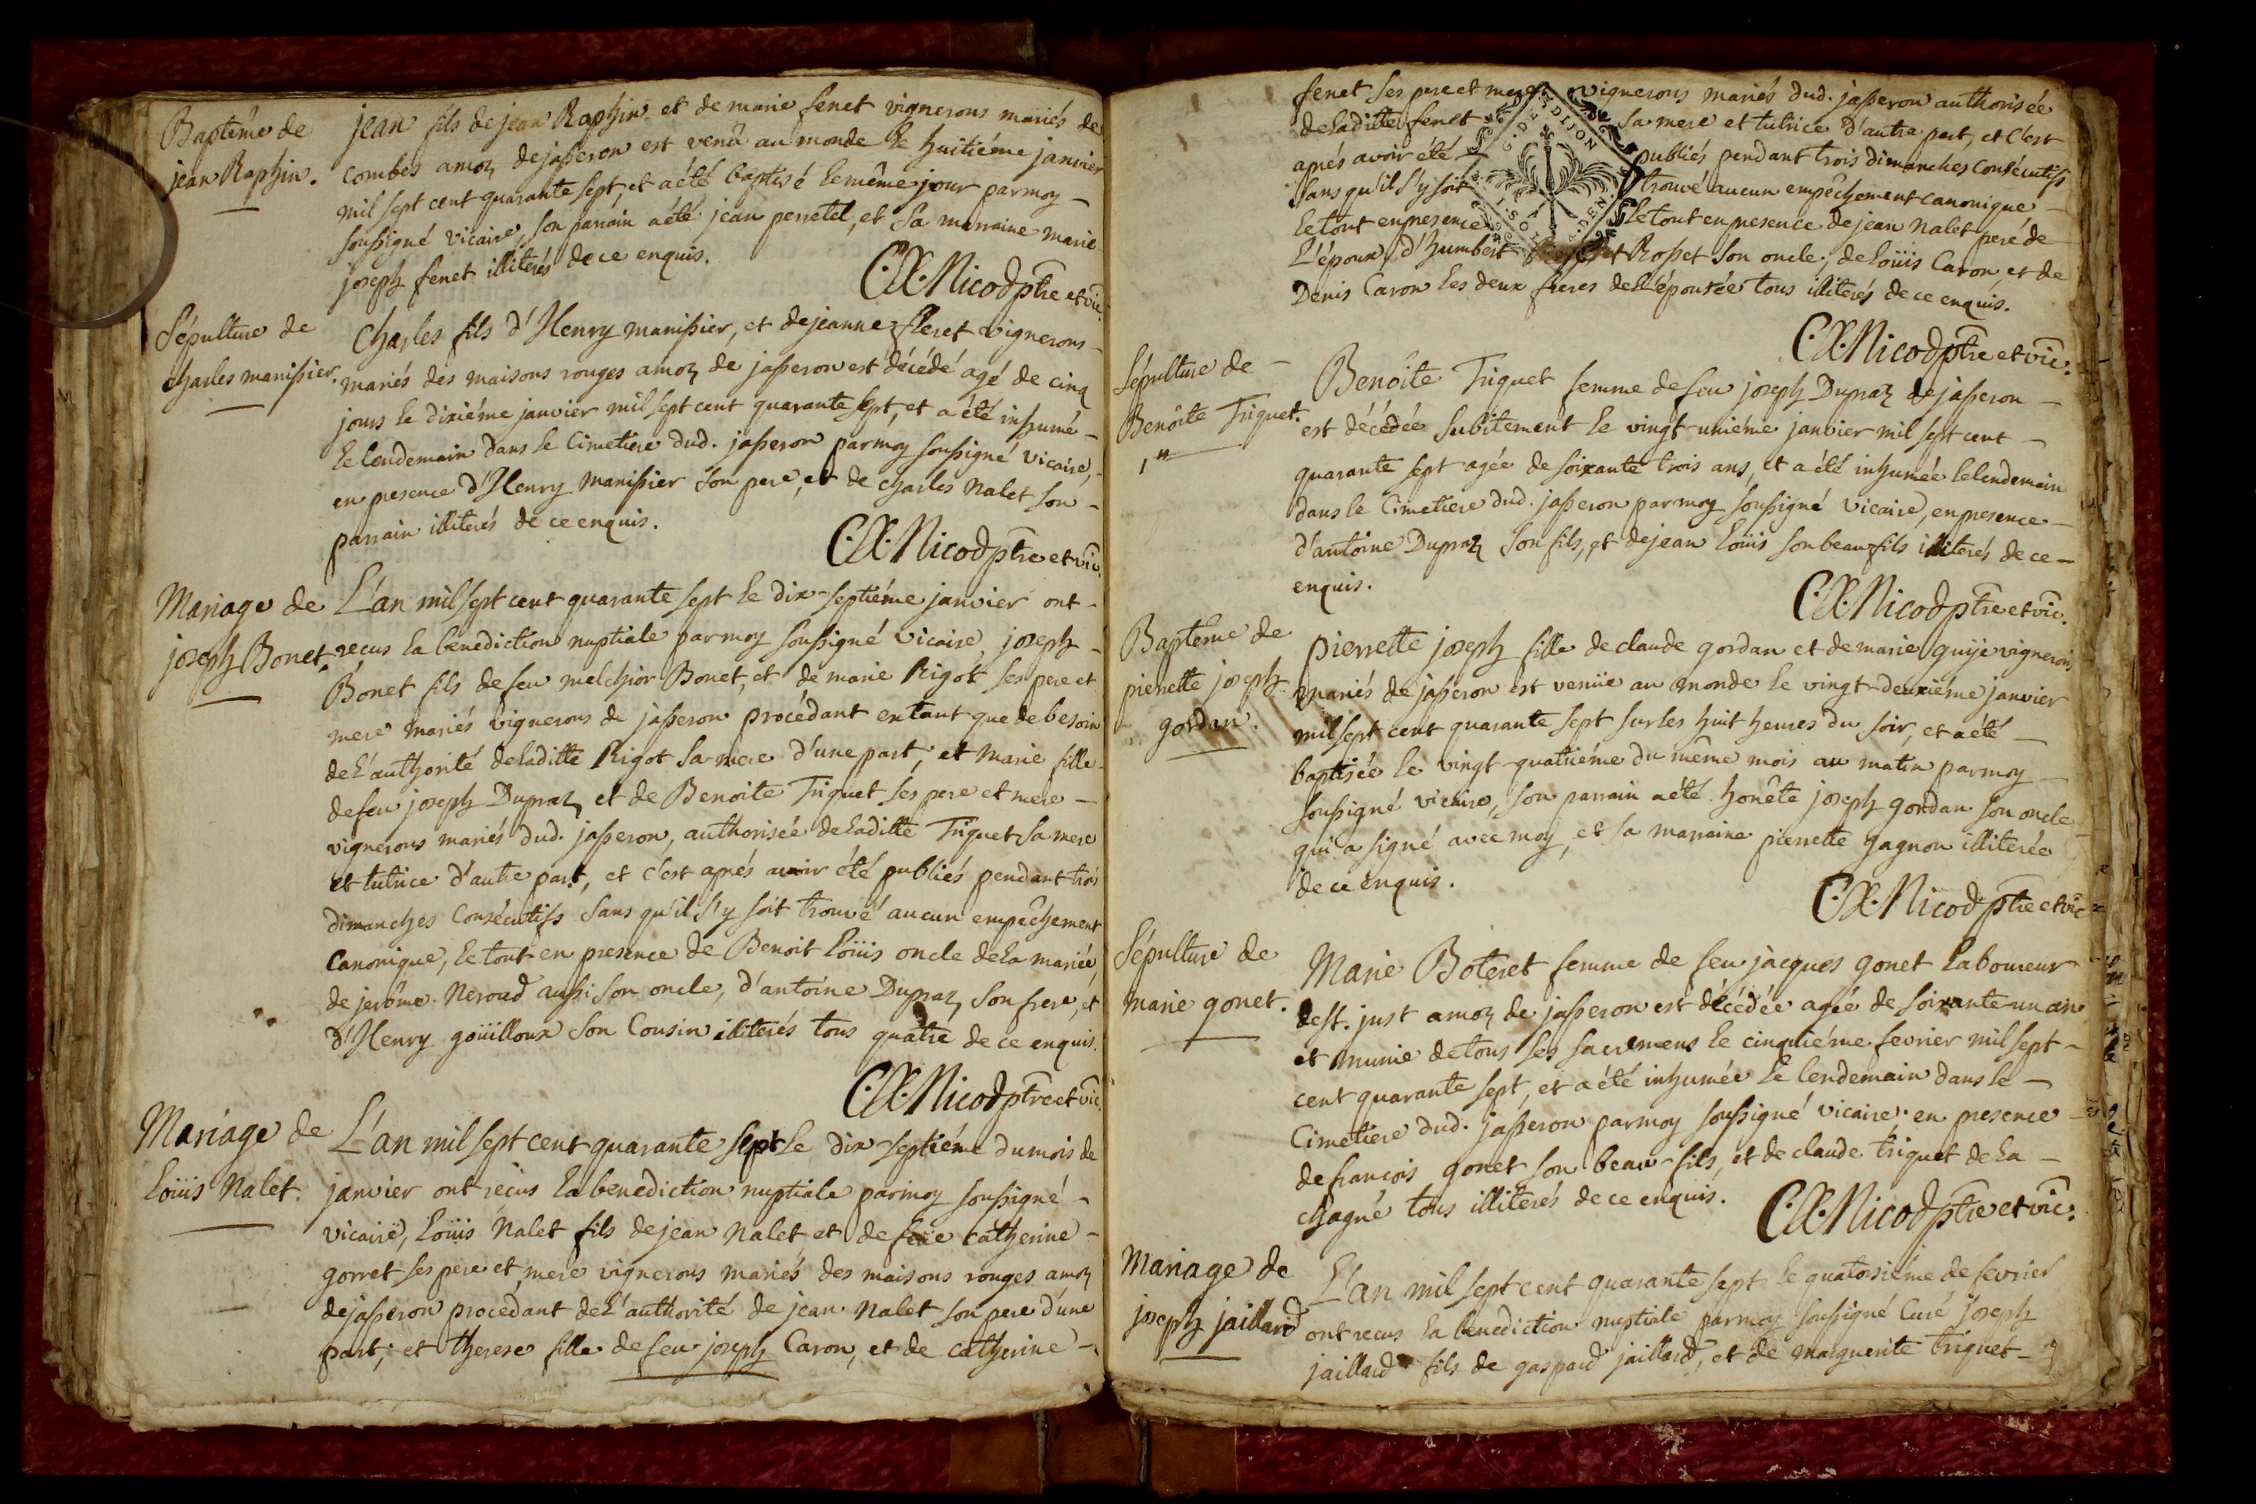 Baptême de
jean Raphin.
jean fils de jean Raphin et de marie fenet vignerons mariés de
combes amoz de jasseron est venû au monde le huitiéme janvier
mil sept cent quarante sept, et a été baptisé le même jour par moy
soussigné vicaire, son parain a été jean perretel, et sa marraine marie
joseph fenet illiterés de ce enquis.
C.X. Nicod ptre et vic.
Sépulture de
charles manissier.
Charles fils d'Henry manissier, et de jeanne fleret vignerons
mariés des maisons rouges amoz de jasseron est décédé agé de cinq
jours le dixiéme janvier mil sept cent quarante sept, et a été inhumé
le lendemain dans le Cimetiere dud. jasseron par moy soussigné vicaire,
en presence d'Henry manissier son pere, et de charles Nalet son
parrain illiterés de ce enquis.
C.X. Nicod ptre et vic.
Mariage de
joseph Bonet.
L'an mil sept cent quarante sept le dix-septiéme janvier ont
recus la benediction nuptiale par moy soussigné vicaire, joseph
Bonet fils de feu melchior Bonet, et de marie Rigot ses pere et
mere mariés vignerons de jasseron procédant en tant que de besoin
de l'authorité de laditte Rigot sa mere d'une part; et marie fille
de feu joseph Dupraz, et de Benoite Triquet ses pere et mere
vignerons mariés dud. jasseron, authorisée de laditte Triquet sa mere
et tutrice d'autre part, et c'est aprés avoir été publiés pendant trois
dimanches Consécutifs sans qu'il s'y soit trouvé aucun empêchement
Canonique, le tout en presence de Benoit Loüis oncle de la mariée,
de jerôme Neroud aussi son oncle, d'antoine Dupraz son frere, et
d'Henry goüilloux son Cousin illiterés tous quatre de ce enquis.
C.X. Nicod ptre et vic.
Mariage de
Loüis Nalet.
L'an mil sept cent quarante sept le dix septiéme du mois de
janvier ont recus la benediction nuptiale par moy soussigné
vicaire, Loüis Nalet fils de jean Nalet, et de feüe catherine
gorret ses pere et mere vignerons mariés des maisons rouges amoz
de jasseron procedant de l'authorité de jean Nalet son pere d'une
part; et therese fille de feu joseph Caron, et de catherine
fenet ses pere et mere vignerons mariés dud. jasseron authorisée
de laditte fenet sa mere et tutrice d'autre part, et c'est
aprés avoir été publiés pendant trois dimanches Consécutifs
sans qu'il s'y soit trouvé aucun empêchement canonique
le tout en presence le tout en presence de jean Nalet peré de
l'époux, d'humbert Rosset son oncle, de Loüis Caron et de
Denis Caron les deux freres de l'épousée tous illiterés de ce enquis.
C.X. Nicod ptre et vic.
G. DE DIJON
Sépulture de
Benoite Triquet.
Benôite Triquet femme de feu joseph Dupraz de jasseron
est décédée subitement le vingt-uniéme janvier mil sept cent
quarante sept agée de soixante trois ans, et a été inhumée le lendemain
dans le Cimetiere dud. jasseron par moy soussigné vicaire, en presence
d'antoine Dupraz son fils, et de jean Loüis son beau fils illiterés de ce
enquis.
C.X. Nicod ptre et vic.
Baptême de
pierrette joseph
gordan.
pierrette joseph fille de claude gordan et de marie quije vignerons
mariés de jasseron est venüe au monde le vingt-deuxiéme janvier
mil sept cent quarante sept sur les huit heures du soir, et a été
baptisée le vingt-quatriéme du même mois au matin par moy
soussigné vicaire, son parrain a été honête joseph gordan son oncle
qui a signé avec moy, et sa marraine pierrette gagnon illiterée
de ce enquis.
C.X. Nicod ptre et vic
Sépulture de
marie gonet.
Marie Boteret femme de feu jacques gonet laboureur
de st. just amoz de jasseron est décédée agée de soixante-un an
et munie de tous ses sacremens le cinquiéme fevrier mil sept
cent quarante sept, et a été inhumée le lendemain dans le
Cimetiere dud. jasseron par moy soussigné vicaire, en presence
de francois gonet son beau-fils, et de claude triquet de la
chagne tous illiterés de ce enquis.
C.X. Nicod ptre et vic.
Mariage de
joseph jaillard
L'an mil sept cent quarante sept le quatorsiéme de fevrier
ont recus la benediction nuptiale par moy soussigné Curé joseph
jaillard fils de gaspard jaillard, et de marguerite triquet